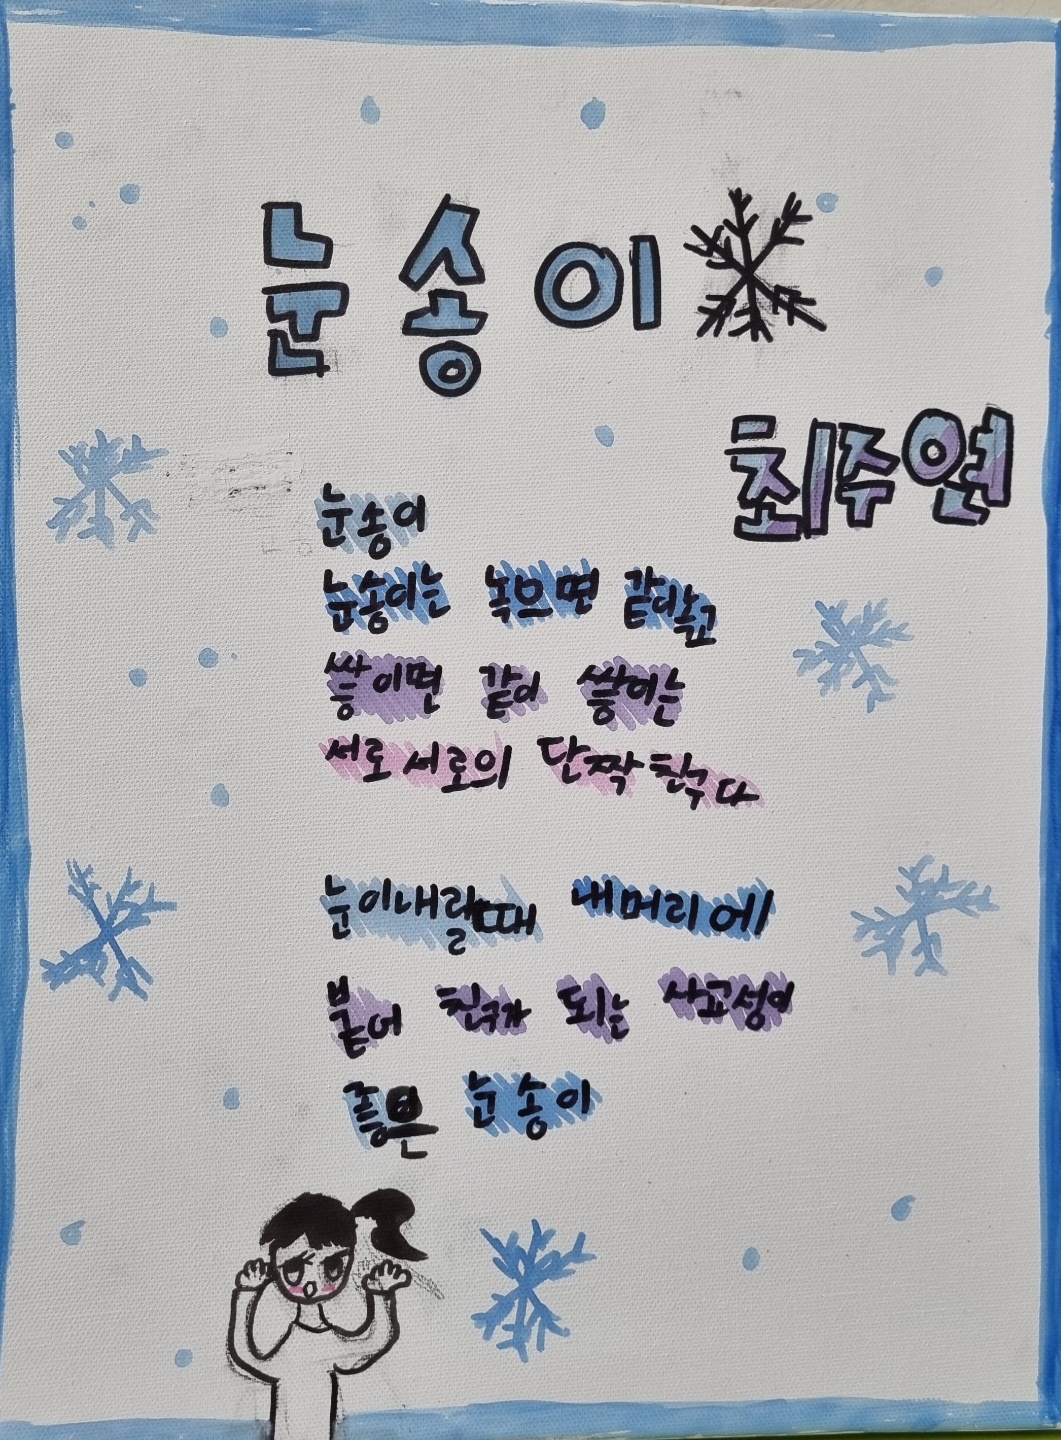 눈송이
최주연
눈송이
눈송이는 녹으면 같이녹고
쌓이면 같이 쌓이는
서로서로의 단짝친구다
눈이내릴때 내머리에
붙어 친구가 되는 사교성이
좋은 눈송이